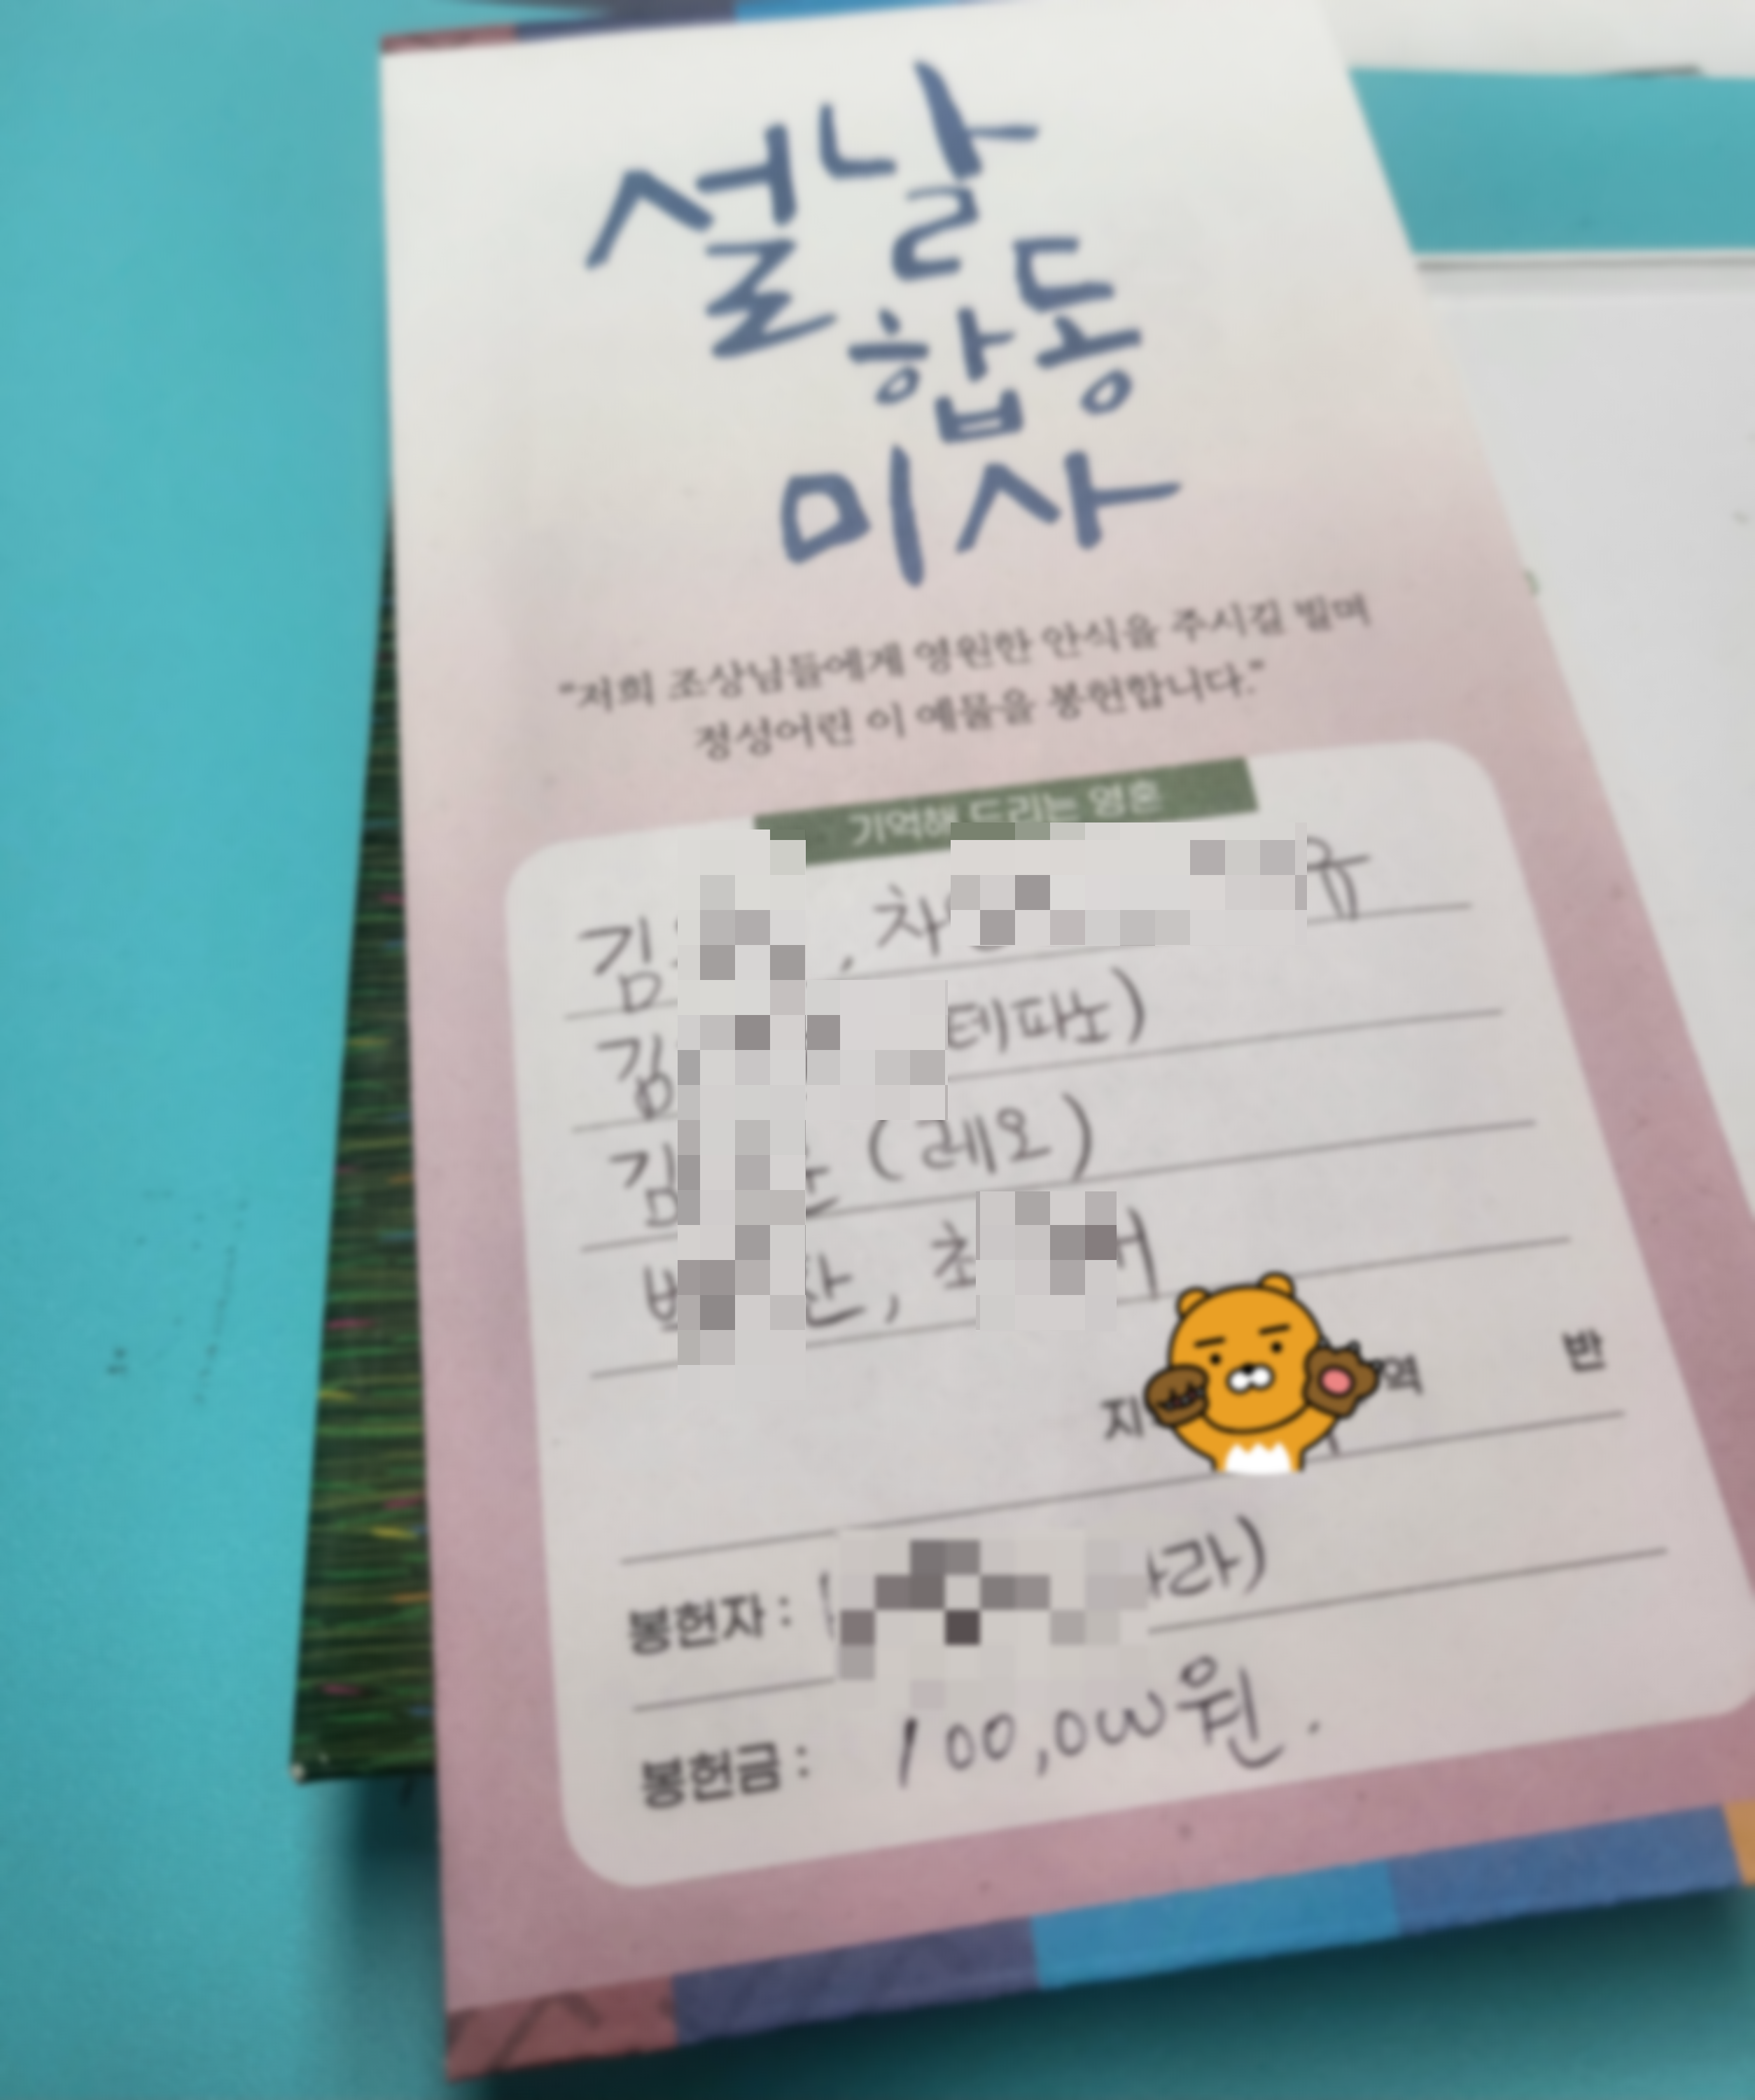 설날
합동
미사
"저희 조상님들에게 영원한 안식을 주시길 빌며
정성어린 이 예물을 봉헌합니다."
기억해 드리는 영혼
김 , 차
김 테파노)
김 (레오)
찬, 최
지 역 반
봉헌자 : 라)
봉헌금 : 100,000원.